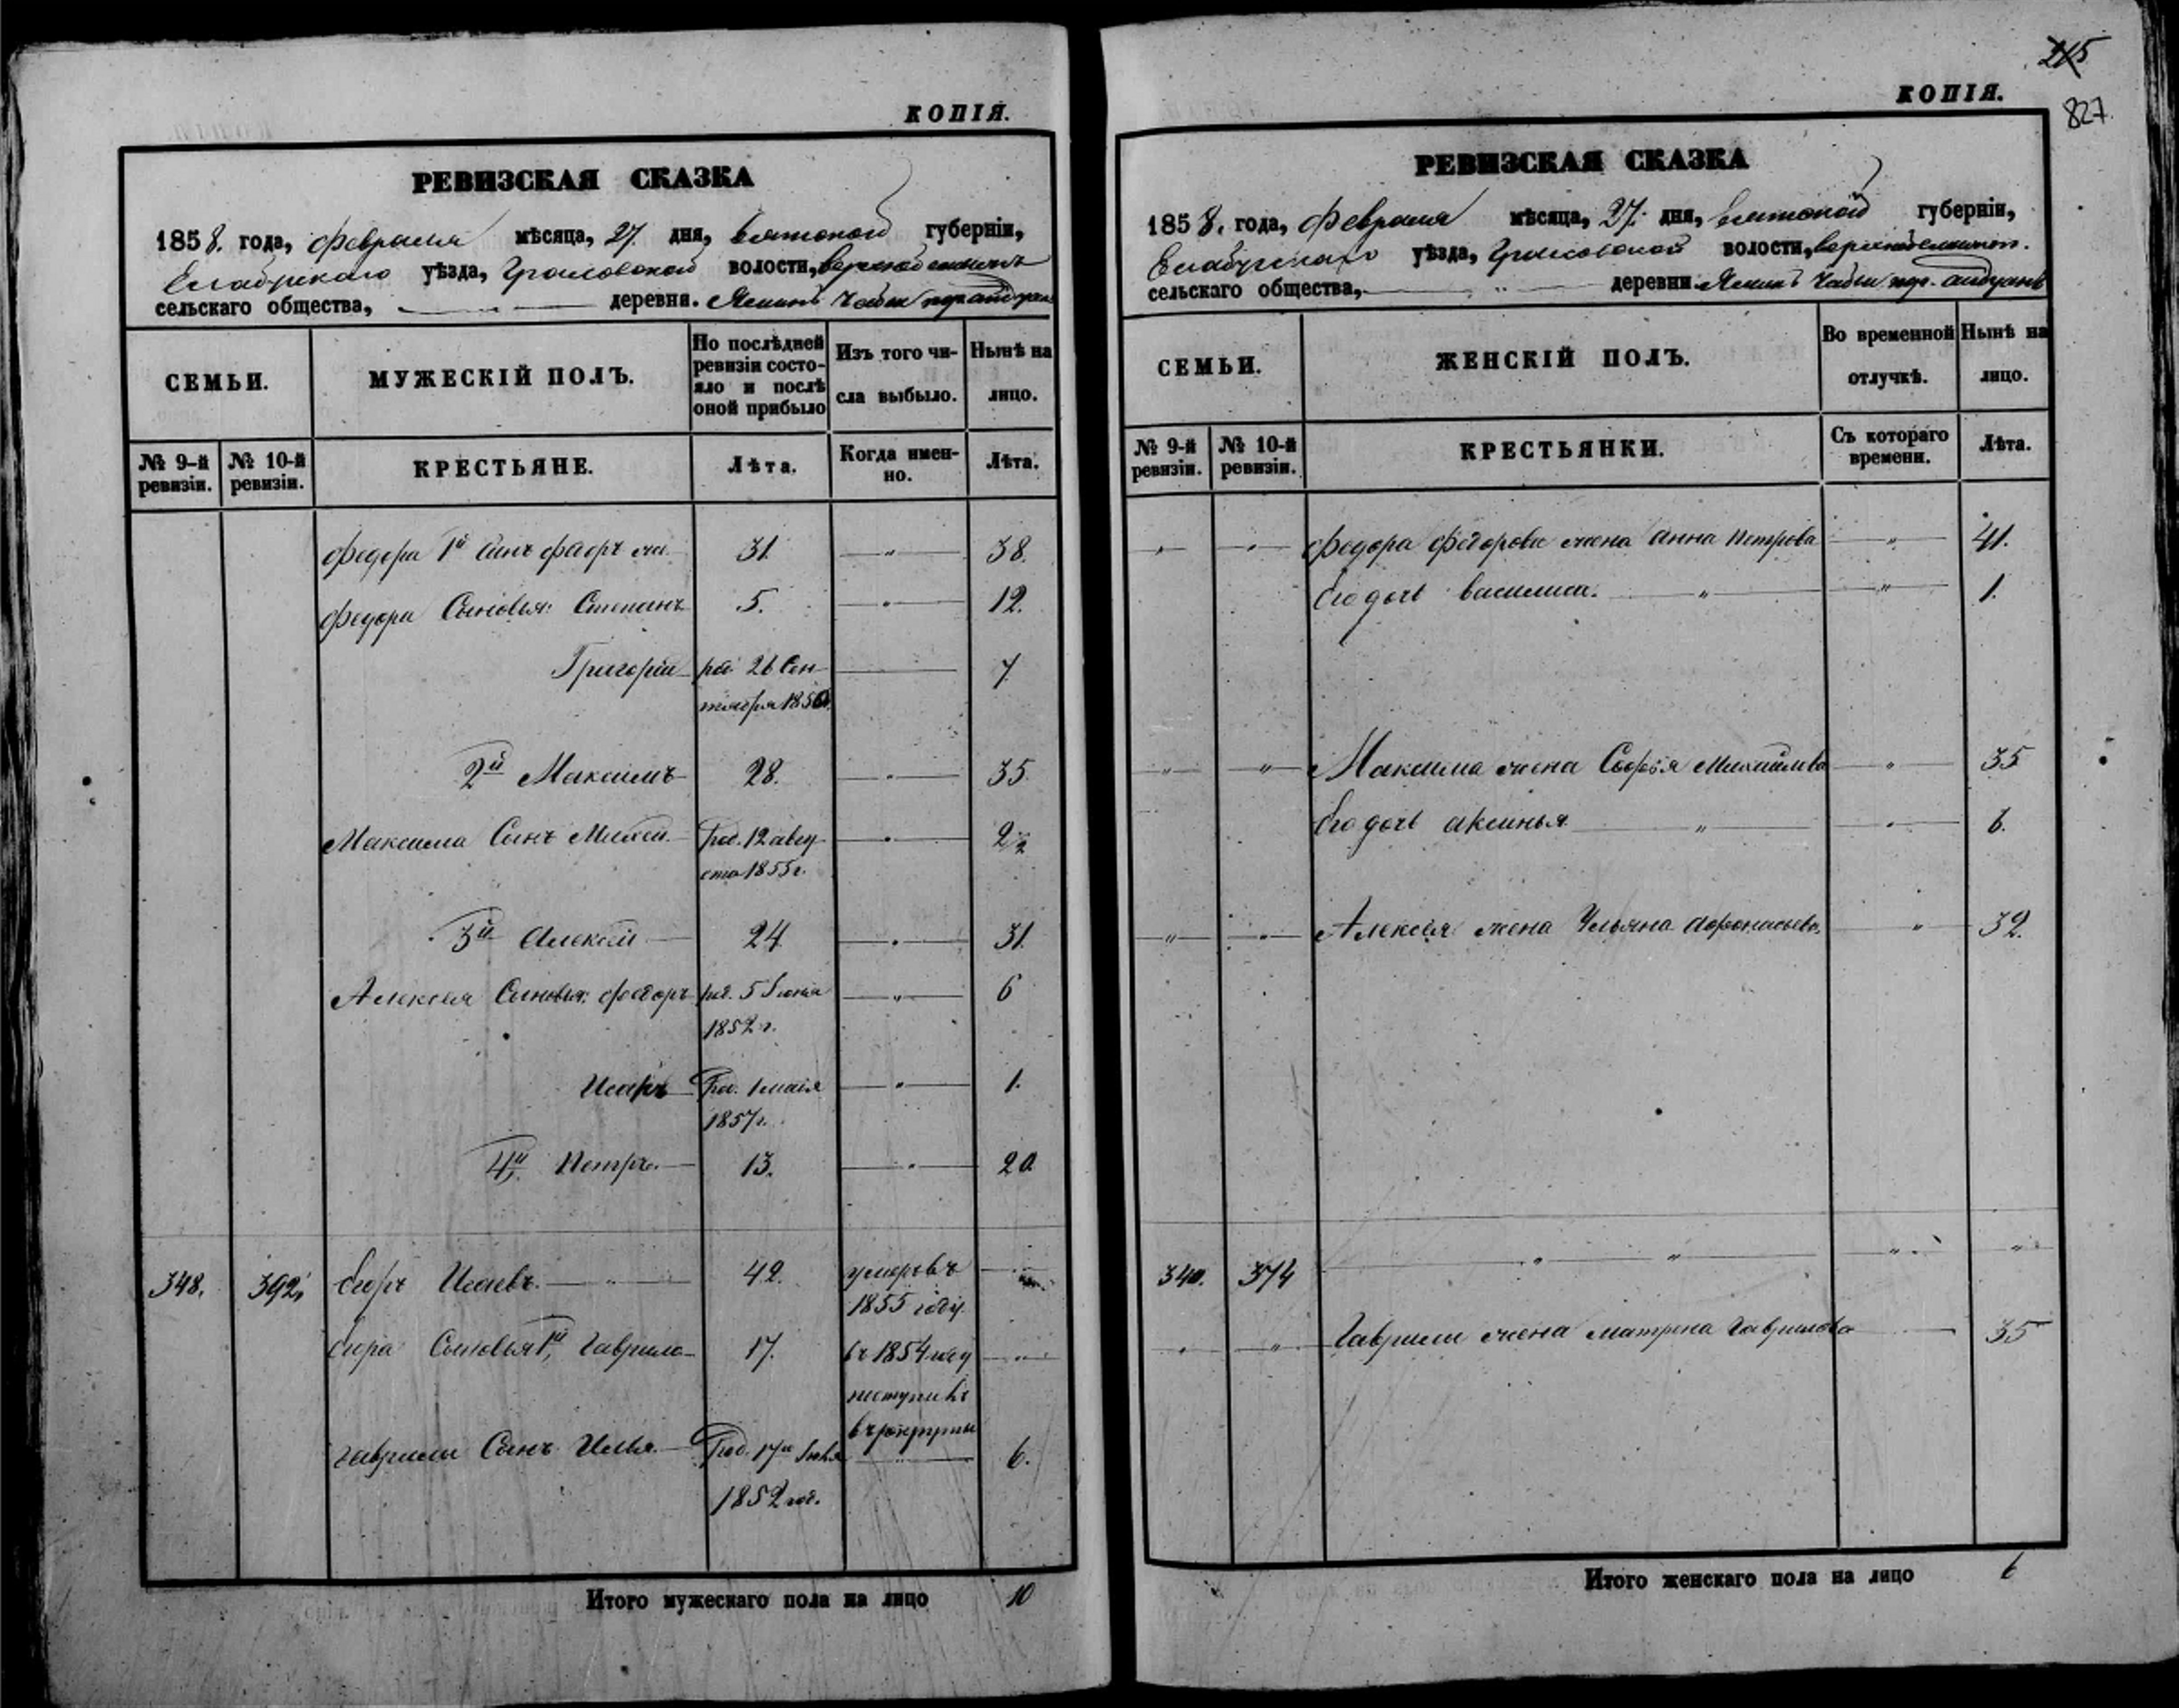 КОПІЯ.
РЕВИЗСКАЯ СКАЗКА
1858. года, Февраля мѣсяца, 27. дня, Вятской губерніи,
Елабужскаго уѣзда, волости,
сельскаго общества, деревни.
СЕМЬИ.
МУЖЕСКІЙ ПОЛЪ.
По послѣдней ревизіи состо-
яло и послѣ
оной прибыло
Изъ того чи-
сла выбыло.
Нынѣ на
лицо.
№ 9-й ревизіи.
№ 10-й ревизіи.
КРЕСТЬЯНЕ.
Лѣта.
Когда имен-
но.
Лѣта.
Федора 1й Сынъ Федоръ 31. " 38.
Федора Сыновья: Степанъ 5. " 12.
Григорій 26 Сен-
тября 7
2й Максимъ 28. " 35
Максима Сынъ Михей. Род. 12 авгу-
ста 1855 г. "
3й Алексей 24. " 31.
Алексея Сыновья: Федоръ род. 5 Іюня
1852 г. " 6
Род. 1 маія
1857 г. " 1.
4й Петръ. 13. " 20.
348. 392. Егоръ Исаевъ. " 42. умеръ въ
1855 году.
Егора Сыновья 1й, Гаврила 17. въ 1854 году
поступилъ
в рекруты
Гаврилы Сынъ Илья. Род. 17го
1852 год. 6.
Итого мужескаго пола на лицо 10
215
827
КОПІЯ.
РЕВИЗСКАЯ СКАЗКА
1858. года, Февраля мѣсяца, 27. дня, Вятской губерніи,
Елабужскаго уѣзда, волости,
сельскаго общества, деревни
СЕМЬИ.
ЖЕНСКІЙ ПОЛЪ.
Во временной
отлучкѣ.
Нынѣ на
лицо.
№ 9-й ревизіи.
№ 10-й ревизіи.
КРЕСТЬЯНКИ.
Съ котораго
времени.
Лѣта.
" " Федора Федорова жена Анна Петрова " 41.
Его дочь Василиса. " " 1.
" " Максима жена Софья Михайлова " 35
Его дочь Аксинья " " 6.
" " Алексея жена Ульяна Афонасьева " 32.
340. 374 " " " "
" " Гаврилы жена Матрена Гаврилова 35
Итого женскаго пола на лицо 6